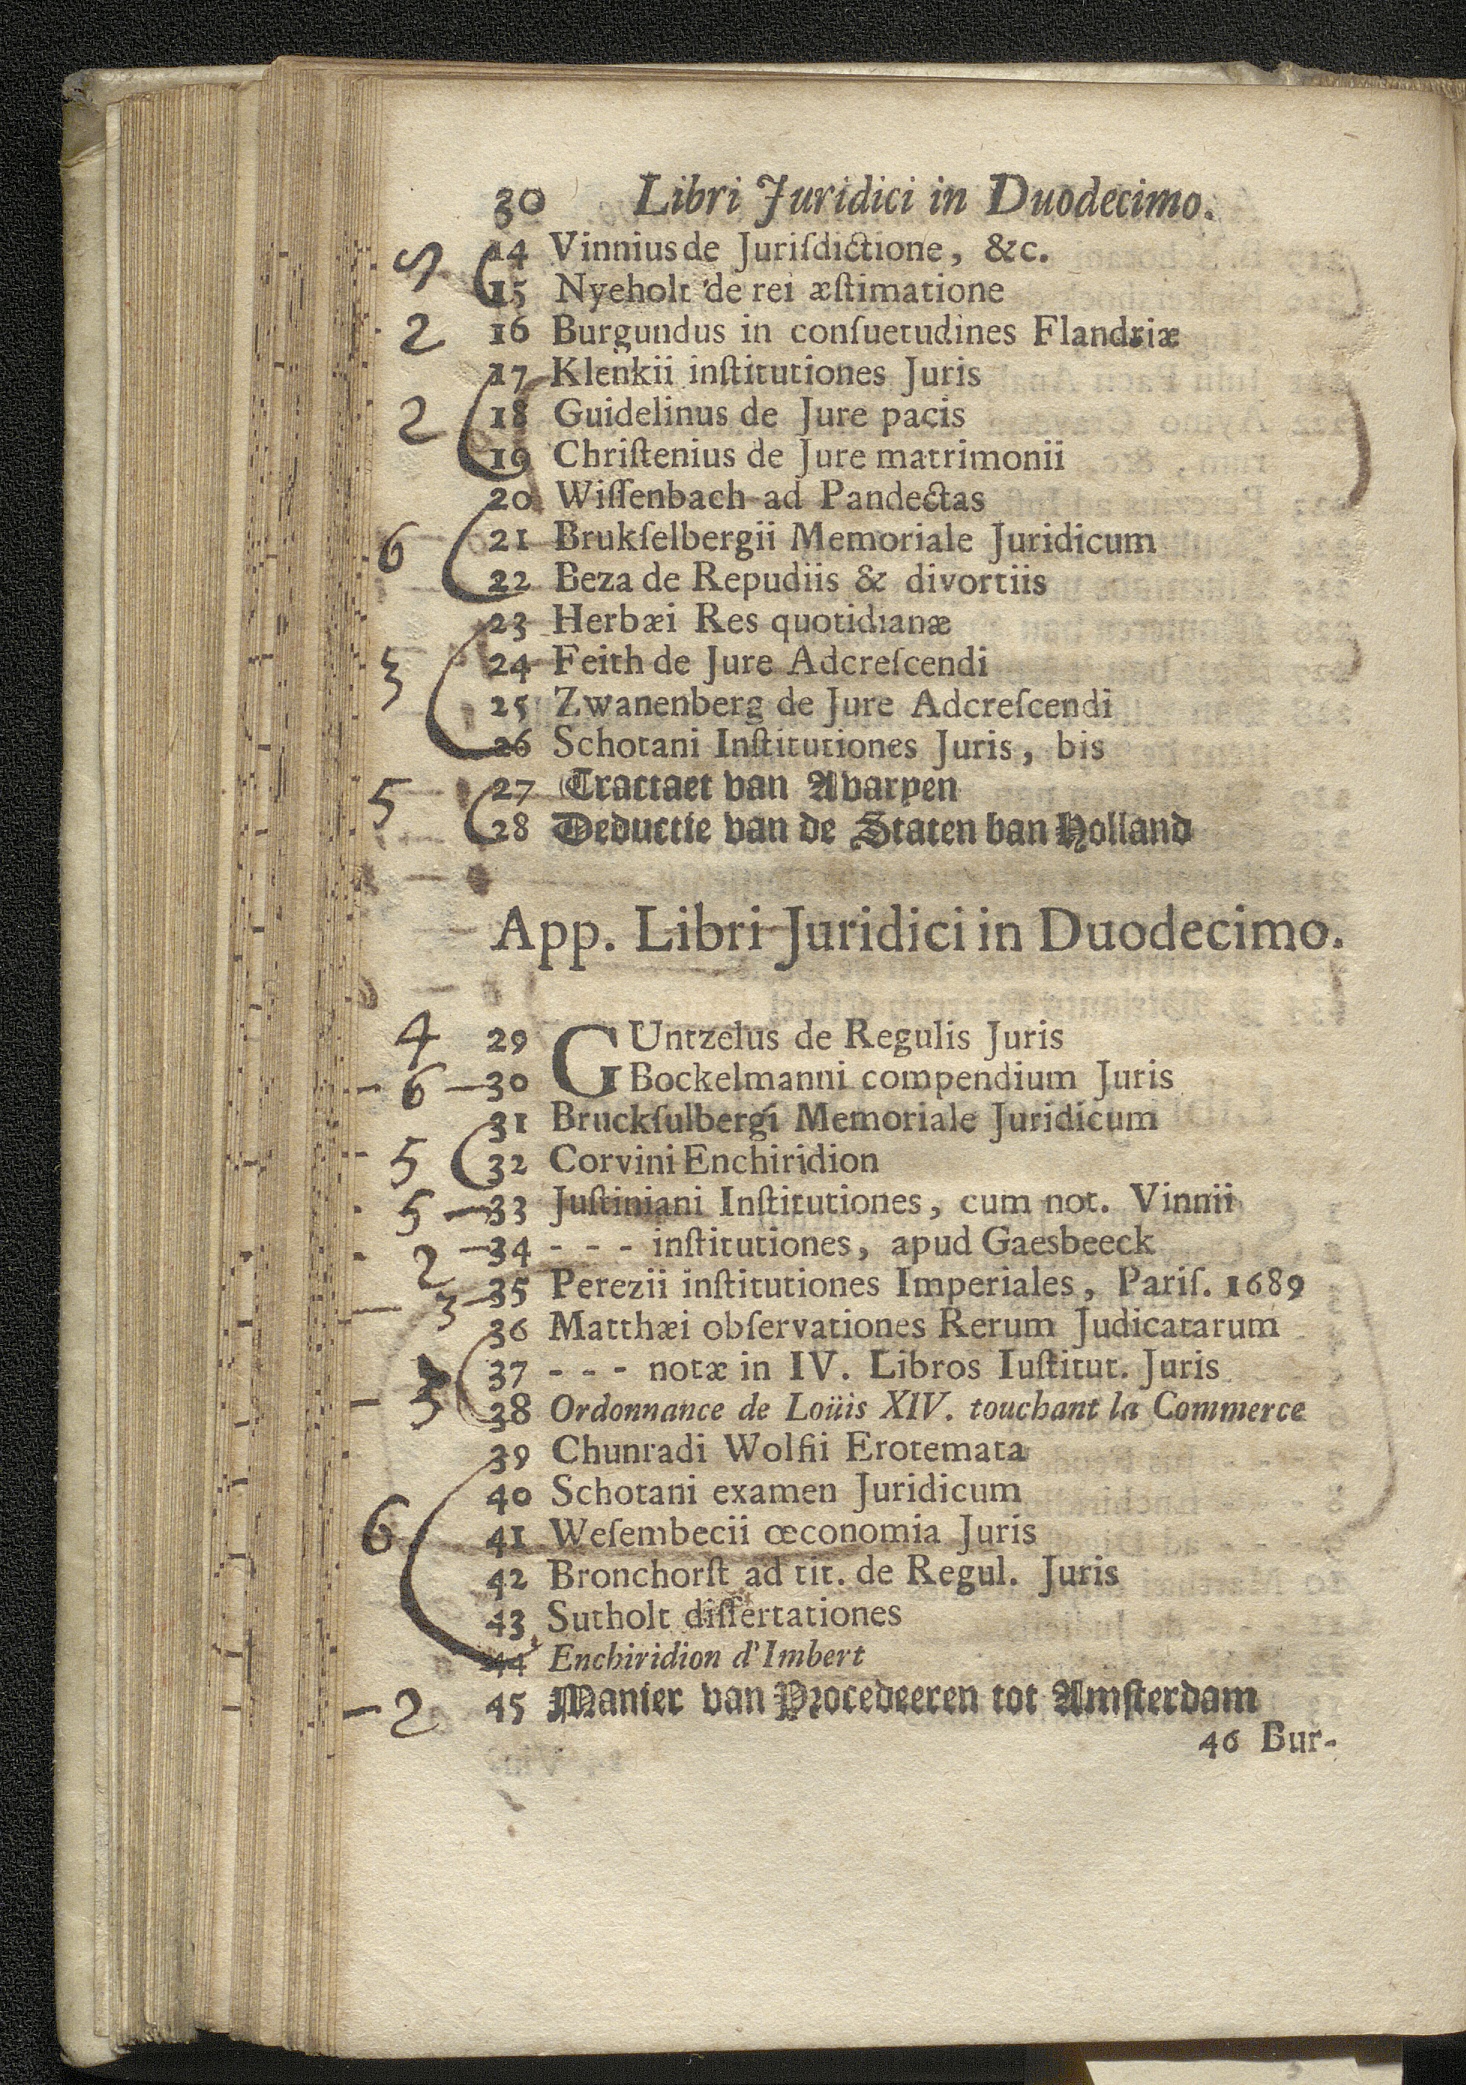 30 Libri Juridici in Duodecimo.
14 Vinnius de Juriſdictione, &c.
15 Nyeholt de rei æſtimatione
2 16 Burgundus in conſuetudines Flandriæ
17 Klenkii inſtitutiones Juris
2 18 Guidelinus de Jure pacis
19 Chriſtenius de Jure matrimonii
20 Wiſſenbach ad Pandectas
6 21 Brukſelbergii Memoriale Juridicum
22 Beza de Repudiis & divortiis
23 Herbæi Res quotidianæ
3 24 Feith de Jure Adcreſcendi
25 Zwanenberg de Jure Adcreſcendi
26 Schotani Inſtitutiones Juris, bis
5 27 Tractaet van Avaryen
28 Deductie van de Staten van Holland
App. Libri Juridici in Duodecimo.
4 29 GUntzelus de Regulis Juris
6 30 Bockelmanni compendium Juris
31 Bruckſulbergi Memoriale Juridicum
5 32 Corvini Enchiridion
5 33 Juſtiniani Inſtitutiones, cum not. Vinnii
2 34 - - - inſtitutiones, apud Gaesbeeck
3 35 Perezii inſtitutiones Imperiales, Pariſ. 1689
36 Matthæi obſervationes Rerum Judicatarum
3 37 - - - notæ in IV. Libros Iuſtitut. Juris
38 Ordonnance de Loüis XIV. touchant la Commerce
39 Chunradi Wolfii Erotemata
40 Schotani examen Juridicum
6 41 Weſembecii œconomia Juris
42 Bronchorſt ad tit. de Regul. Juris
43 Sutholt diſſertationes
44 Enchiridion d'Imbert
2 45 Manier van Procedeeren tot Amſterdam
46 Bur-